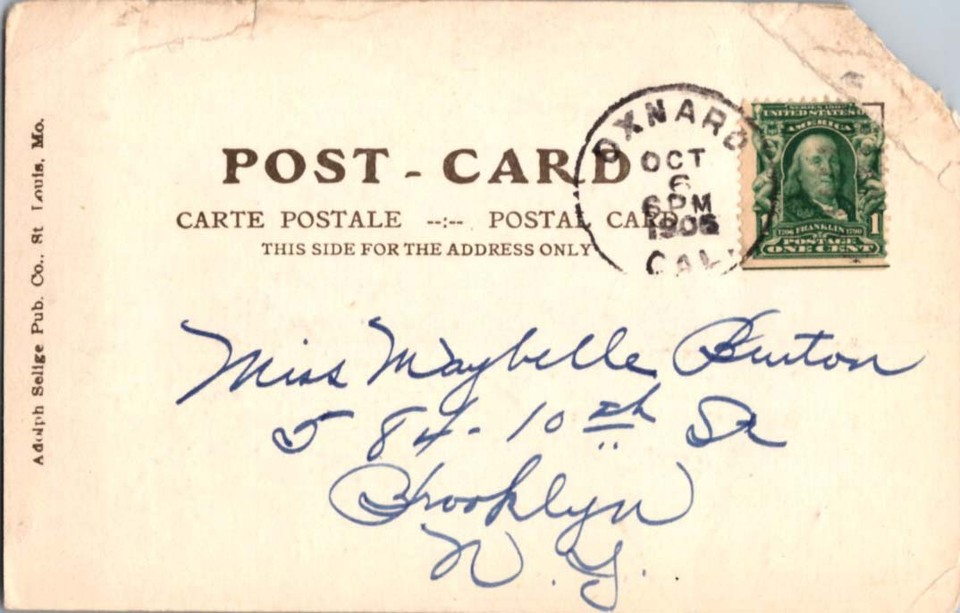 POST - CARD
CARTE POSTALE --:-- POSTAL CARD
THIS SIDE FOR THE ADDRESS ONLY
OXNARD
OCT
6
6 PM
1906
CAL
SERIES 1902
UNITED STATES OF
AMERICA
1706 FRANKLIN 1790
POSTAGE
ONE CENT
1
Miss Maybelle Burton
584-10th St
Brooklyn
N.Y.
Adolph Selige Pub. Co., St Louis, Mo.